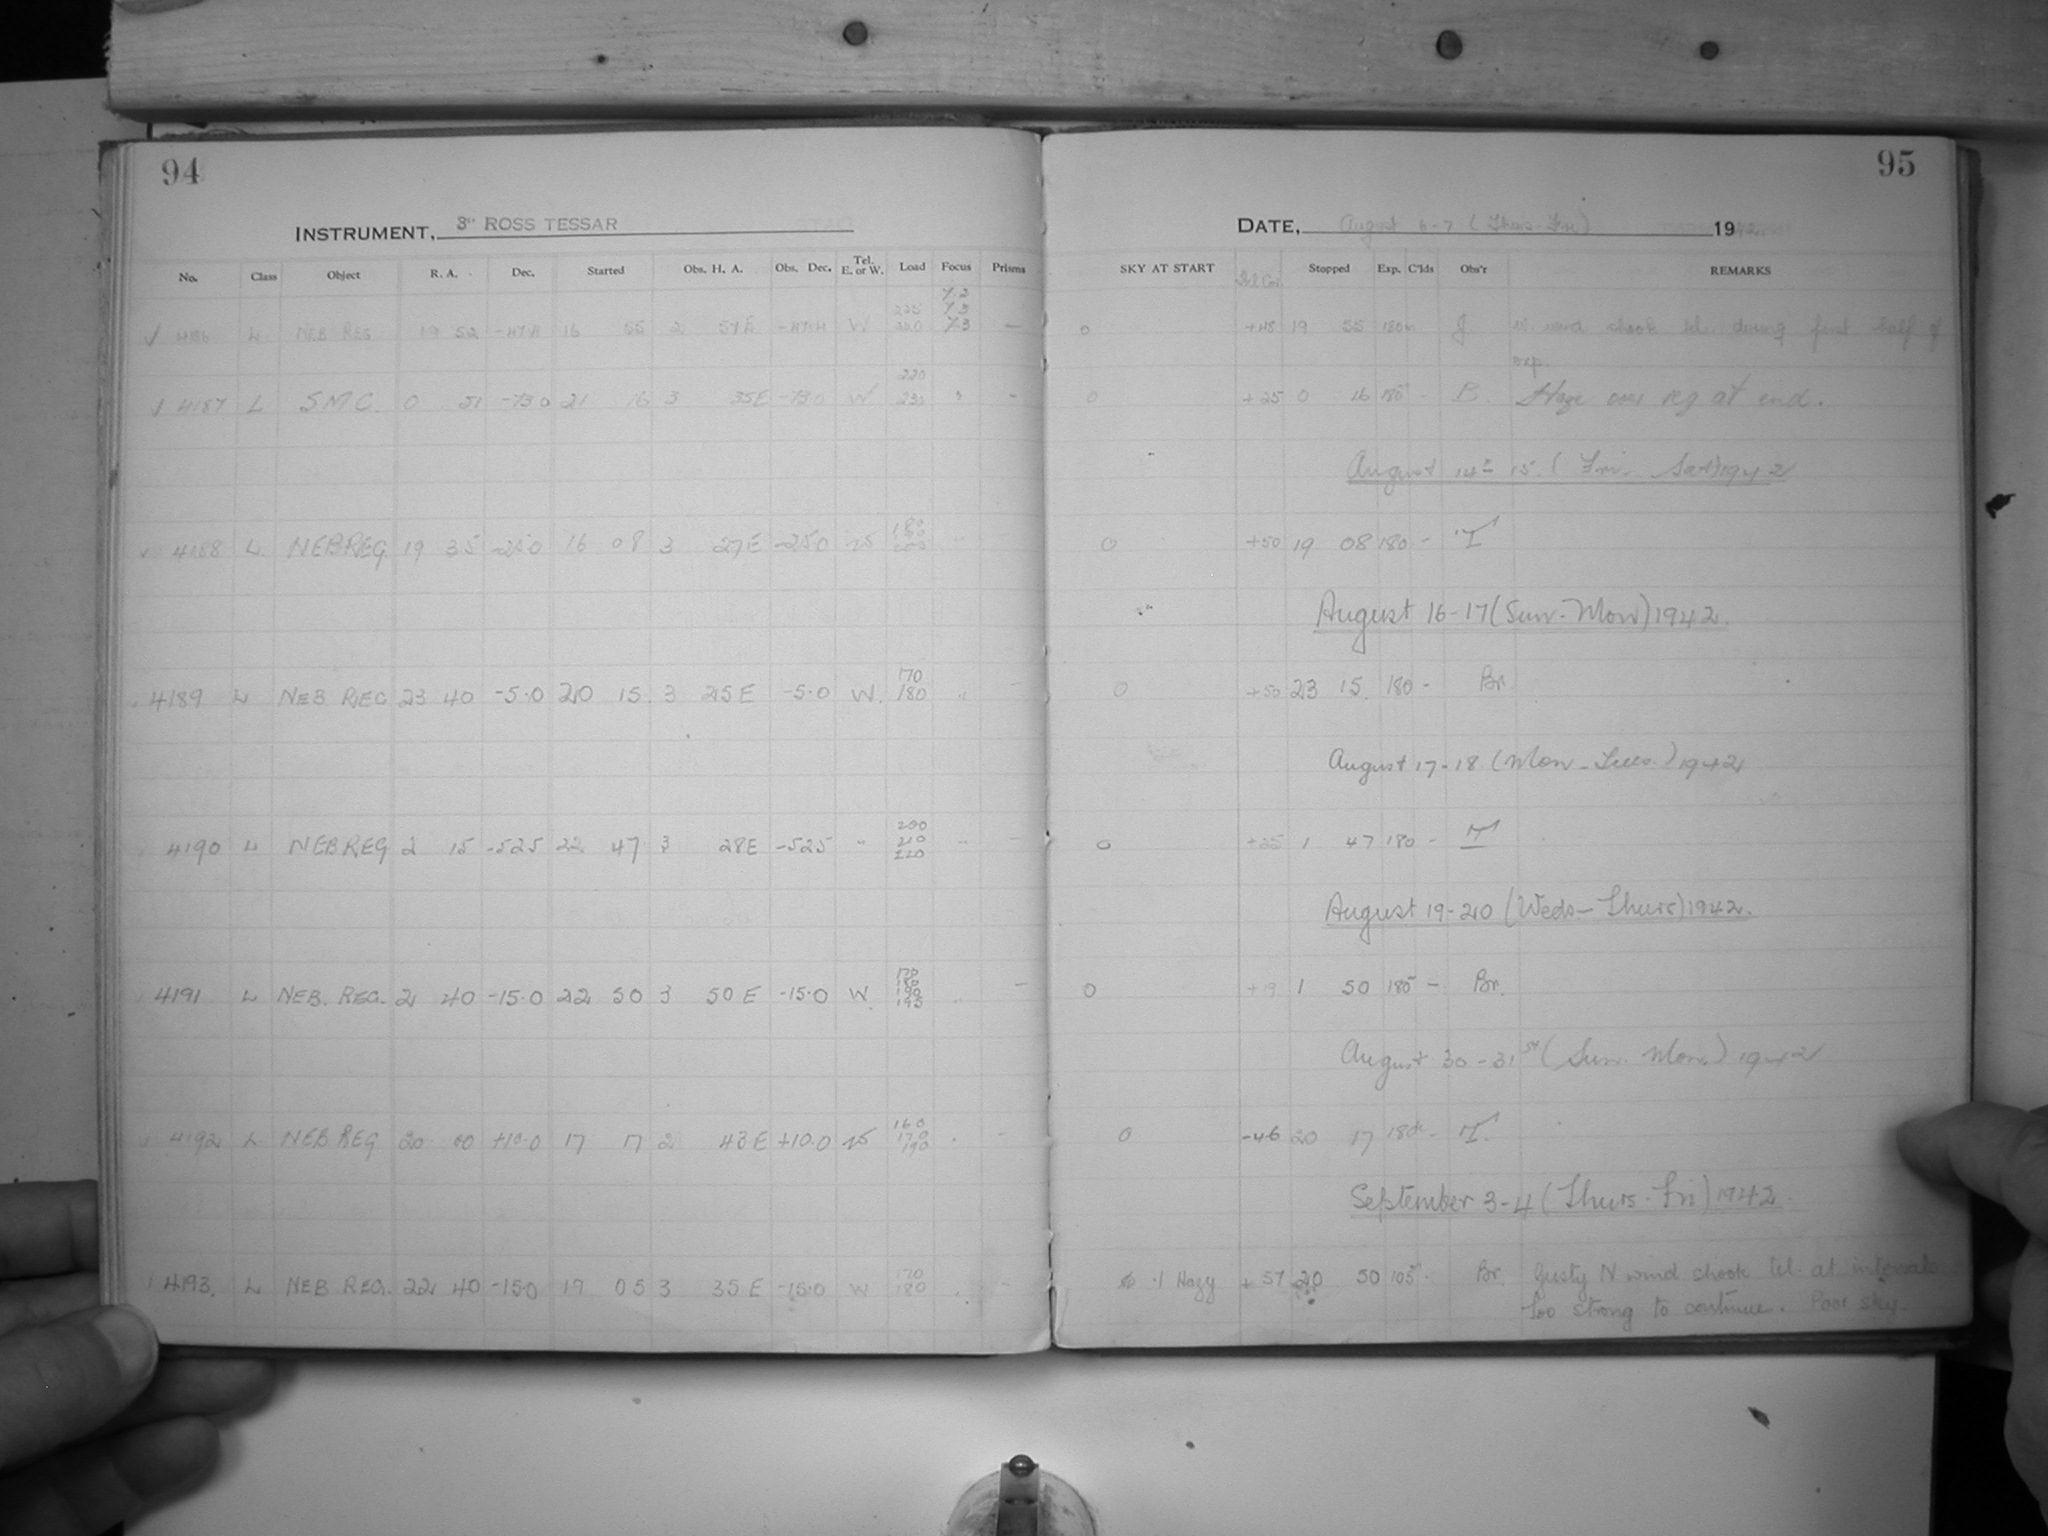 94
INSTRUMENT, 3" ROSS TESSAR
No. Class Object R. A. Dec. Started Obs. H. A. Obs. Dec. Tel. E. or W. Load Focus Prisms
7.2
225 7.3
4186 L. NEB REG 19 52 16 55 2 57E W 240 7.3 —
220
4187 L SMC. 0 51 -73 0 21 16 3 35E -73 0 W 230 " -
180
4188 L. NEB REG. 19 35 -25 0 16 08 3 27E -25.0 W
170
4189 L NEB REG 23 40 -5.0 20 15. 3 25E -5.0 W. 180 " -
200
210
4190 L NEB REG 2 15 -52.5 22 47 3 28E -52.5 " 220 " -
170
180
190
4191 L NEB. REG. 2 40 -15.0 22 50 3 50E -15.0 W 195 " -
160
170
4192 L NEB REG 20 00 +10.0 17 17 2 43E +10.0 W 190 -
170
4193. L NEB REG. 22 40 -15.0 19 05 3 35E -15.0 W 180 -
95
DATE, August 6-7 (Thurs-Fri) 1942
SKY AT START Stopped Exp. C'lds Obs'r REMARKS
0 +48 19 55 180 J. W. wind shook tel. during first half of
exp.
0 +25 0 16 180 - B. Haze over reg at end.
August 14-15. (Fri- Sat) 1942
0 +50 19 08 180 - T
August 16-17 (Sun-Mon) 1942.
0 +50 23 15. 180 - Br
August 17-18 (Mon-Tues.) 1942
0 +25 1 47 180 - T
August 19-20 (Weds-Thurs) 1942.
0 +19 1 50 180 - Br.
August 30-31st (Sun-Mon.) 1942
0 -46 20 17 180 - T.
September 3-4 (Thurs-Fri) 1942.
.1 Hazy +57 20 50 105 - Br. Gusty N wind shook tel. at intervals
Too strong to continue. Poor sky.